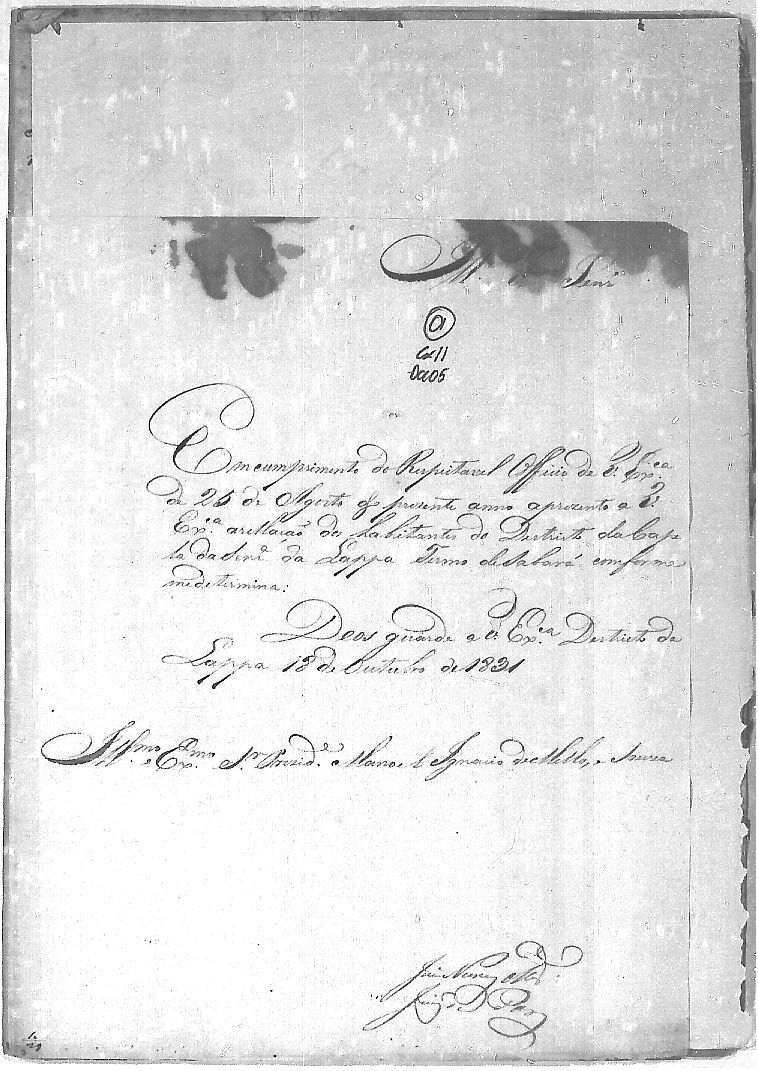 Senr
01
Cx 11
Doc 05
Em cumprimento do Respeitavel Officio de V. Ex.cia
de 25 de Agosto do prezente anno aprezento a V.
Ex.a a rellação dos habitantes do Destricto da Cap
la da Senr.a da Lappa Termo de Sabará conforme
me determina:
Deos guarde a V. Ex.a Destricto da
Lappa 18 de Outubro de 1831
Ill.mo e Ex.mo Sr. Prezid.e Manoel Ignacio de Mello, e Souza
José Nunes
Juiz de Paz